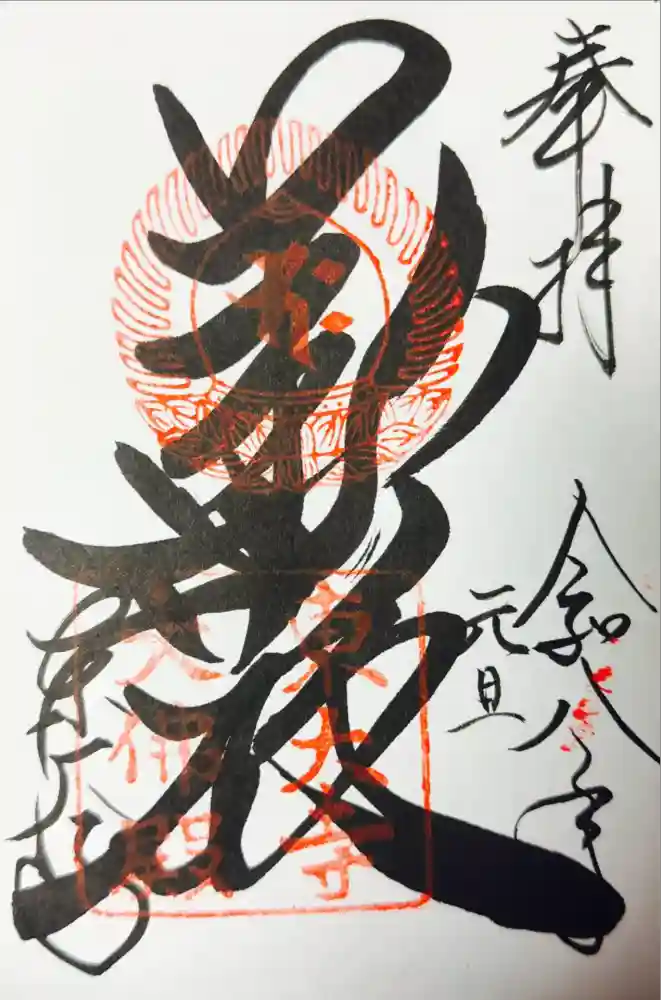 奉拝
令和八年
元旦
華厳
東大寺
大佛殿
東大寺